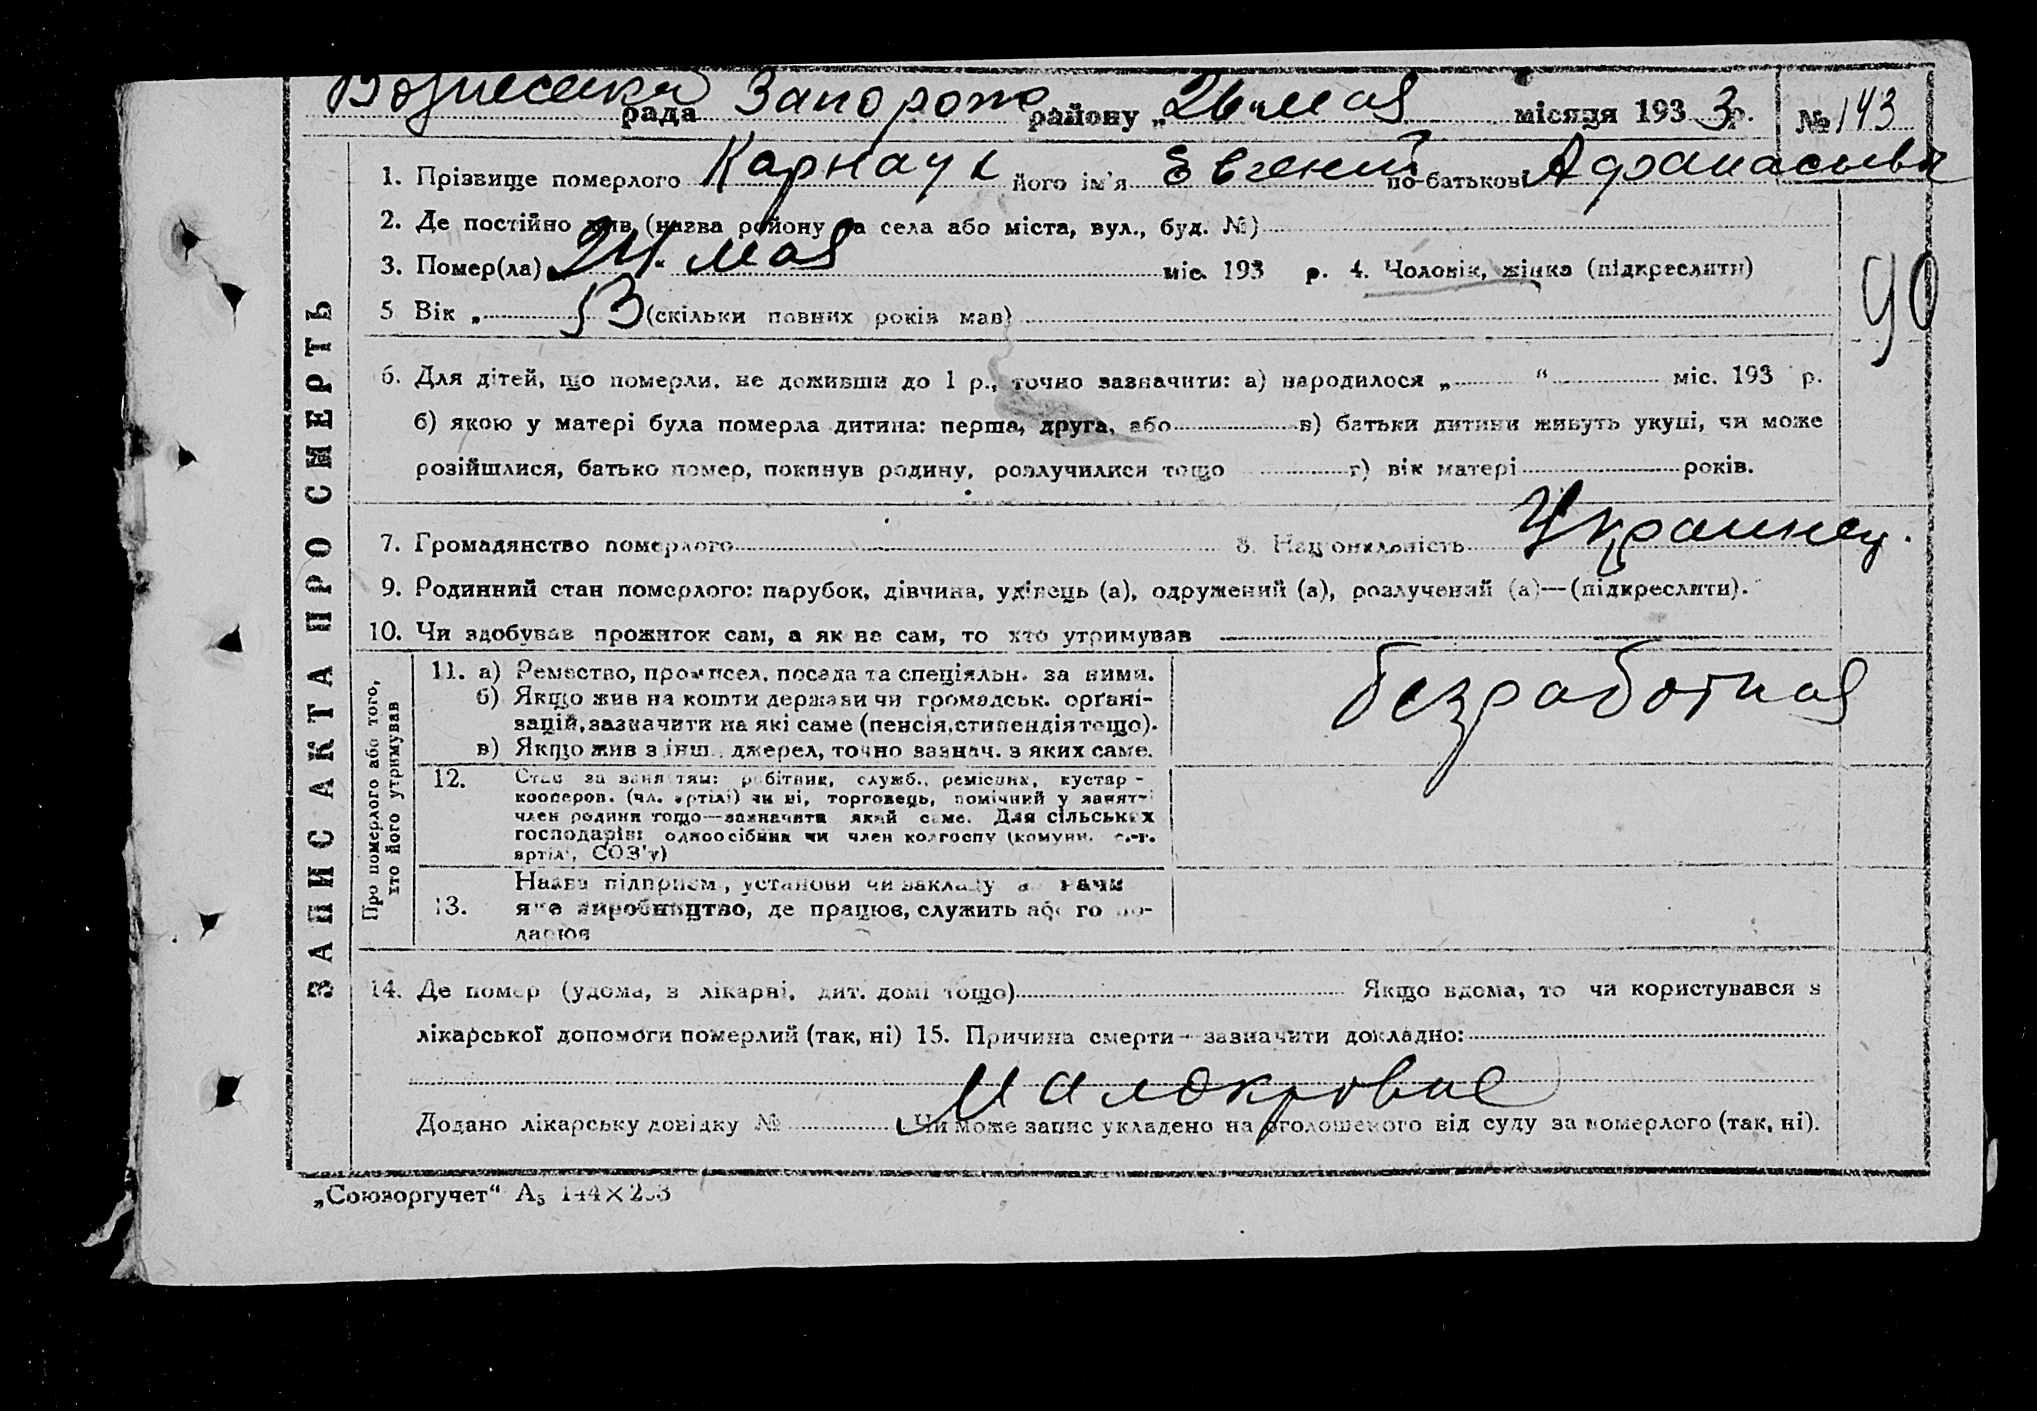 Вознесенка рада Запорож району „26“ мая місяця 1933 р. № 143
1. Прізвище померлого Карнаух його ім'я Евгений по-батькові Афанасьев
2. Де постійно жив (назва району та села або міста, вул., буд. №)
3. Помер(ла) „24“ мая міс. 193 р. 4. Чоловік, жінка (підкреслити)
5 Вік „ 53 (скільки повних років мав)
90
6. Для дітей, що померли, не доживши до 1 р., точно зазначити: а) народилося „ “ міс. 193 р.
б) якою у матері була померла дитина: перша, друга, або в) батьки дитини живуть укупі, чи може
розійшлися, батько помер, покинув родину, розлучилися тощо г) вік матері років.
7. Громадянство померлого 8. Національність Украинец.
9. Родинний стан померлого: парубок, дівчина, удівець (а), одружений (а), розлучений (а)—(підкреслити).
10. Чи здобував прожиток сам, а як не сам, то хто утримував
ЗАПИС АКТА ПРО СМЕРТЬ
Про померлого або того,
хто його утримував
11. а) Ремество, промисел, посада та спеціяльн. за ними.
б) Якщо жив на кошти держави чи громадськ. орґані-
зацій, зазначити на які саме (пенсія, стипендія тощо).
в) Якщо жив з інш. джерел, точно зазнач. з яких саме.
безработная
12. Стан за заняттям: робітник, служб., ремісник, кустар -
кооперов. (чл. артілі) чи ні, торговець, помічний у занятті
член родини тощо—зазначити який саме. Для сільських
господарів: одноосібник чи член колгоспу (комуни, с.-г.
артілі, СОЗ'у)
13. Назва підприєм., установи чи закладу
яке виробництво, де працює, служить або го по-
дасює
14. Де помер (удома, в лікарні, дит. домі тощо) Якщо вдома, то чи користувався з
лікарської допомоги померлий (так, ні) 15. Причина смерти—зазначити докладно:
малокровие
Додано лікарську довідку № Чи може запис укладено на оголошеного від суду за померлого (так, ні).
„Союзоргучет“ А₅ 144×203